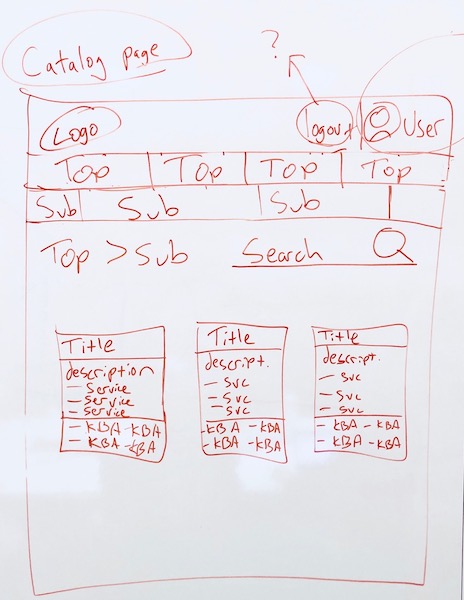 Catalog page
?
Logo logout User
Top Top Top Top
Sub Sub Sub
Top > Sub Search
Title
description
- Service
- Service
- Service
- KBA - KBA
- KBA - KBA
Title
descript.
- Svc
- Svc
- Svc
- KBA - KBA
- KBA - KBA
Title
descript.
- Svc
- Svc
- Svc
- KBA - KBA
- KBA - KBA